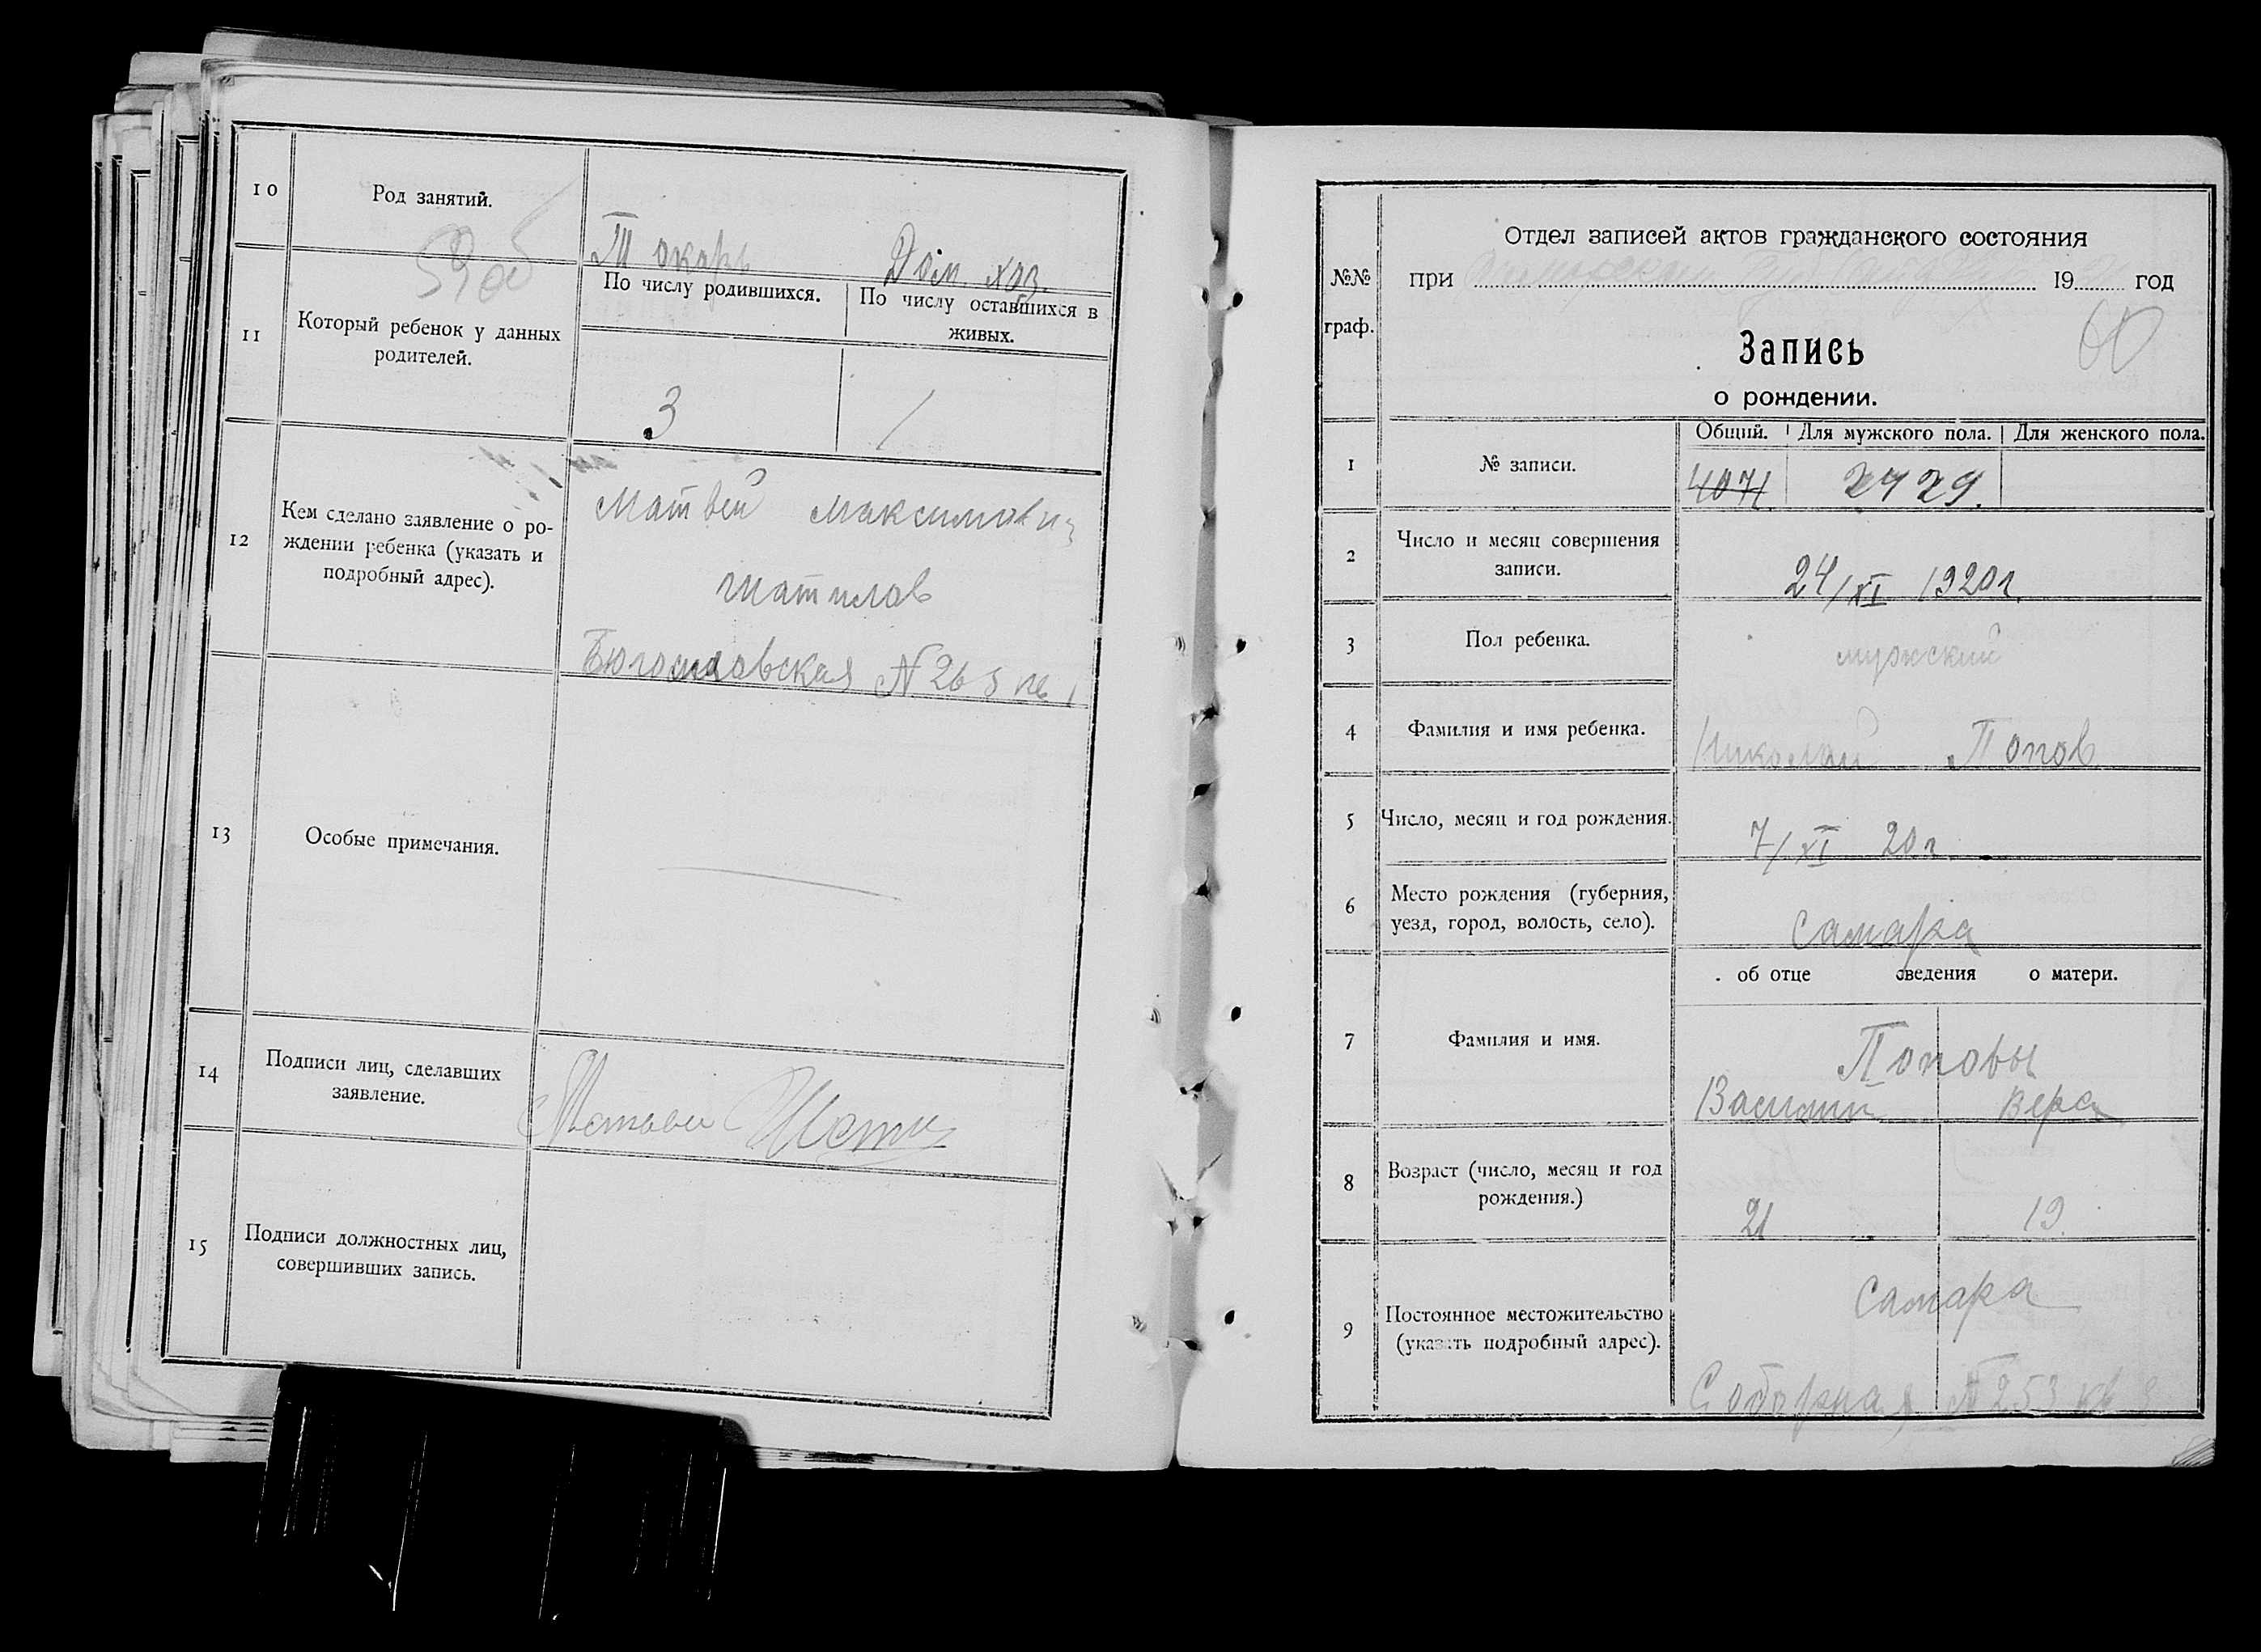 10
Род занятий.
Токарь Дом. хоз.
Раб
11
Который ребенок у данных
родителей.
По числу родившихся.
По числу оставшихся в
живых.
3
1
12
Кем сделано заявление о ро-
ждении ребенка (указать и
подробный адрес).
Матвей Максимович
Богословская № 26
13
Особые примечания.
14
Подписи лиц, сделавших
заявление.
15
Подписи должностных лиц,
совершивших запись.
№№
граф.
Отдел записей актов гражданского состояния
при 19 год
60
Запись
о рождении.
1
№ записи.
Общий. Для мужского пола. Для женского пола.
4071 2729.
2
Число и месяц совершения
записи.
24/XI 1920 г.
3
Пол ребенка.
мужский
4
Фамилия и имя ребенка.
Николай Попов
5
Число, месяц и год рождения.
7/XI 20 г.
6
Место рождения (губерния,
уезд, город, волость, село).
Самара
об отце сведения о матери.
7
Фамилия и имя.
Поповы
Василий Вера
8
Возраст (число, месяц и год
рождения.)
21 19.
9
Постоянное местожительство
(указать подробный адрес).
Самара
Соборная № 253 кв